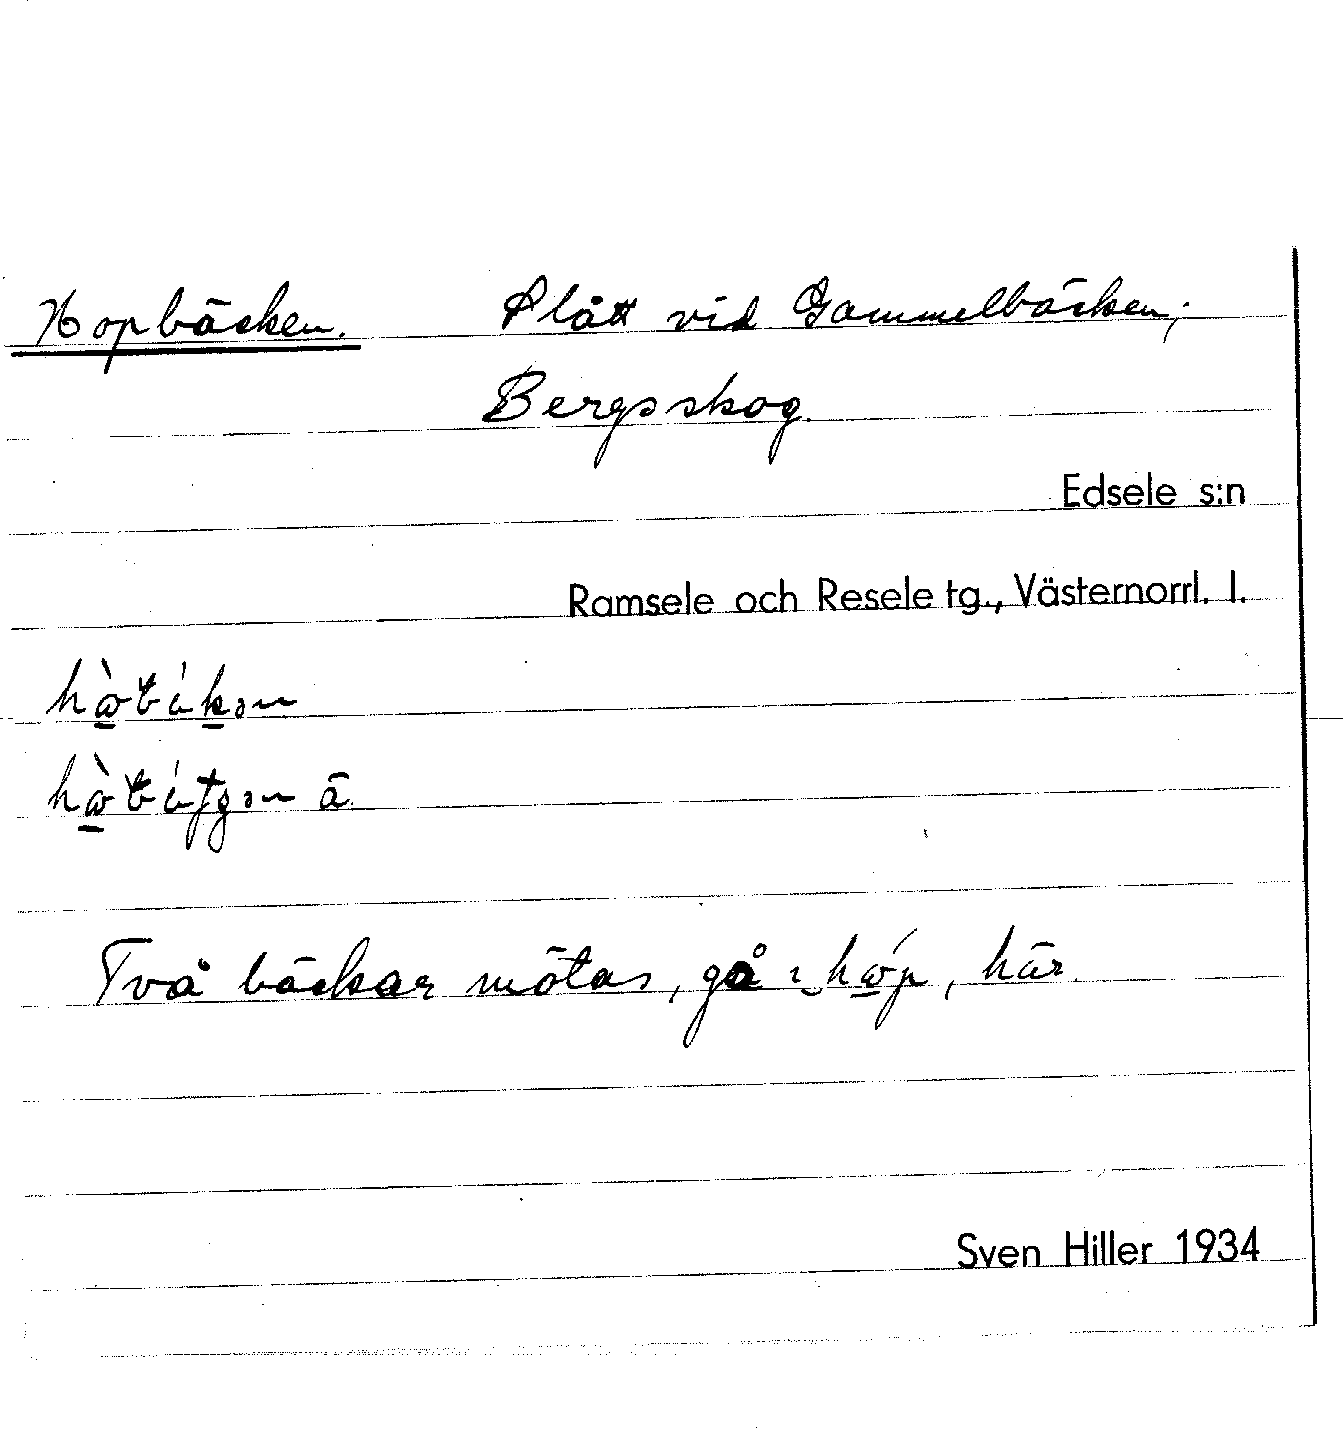 Hopbäcken. Slått vid Gammelbäcken;
Bergsskog.
Edsele s:n
Ramsele och Resele tg., Västernorrl. l.
ā
Två bäckar mötas, gå i hop, här.
Sven Hiller 1934